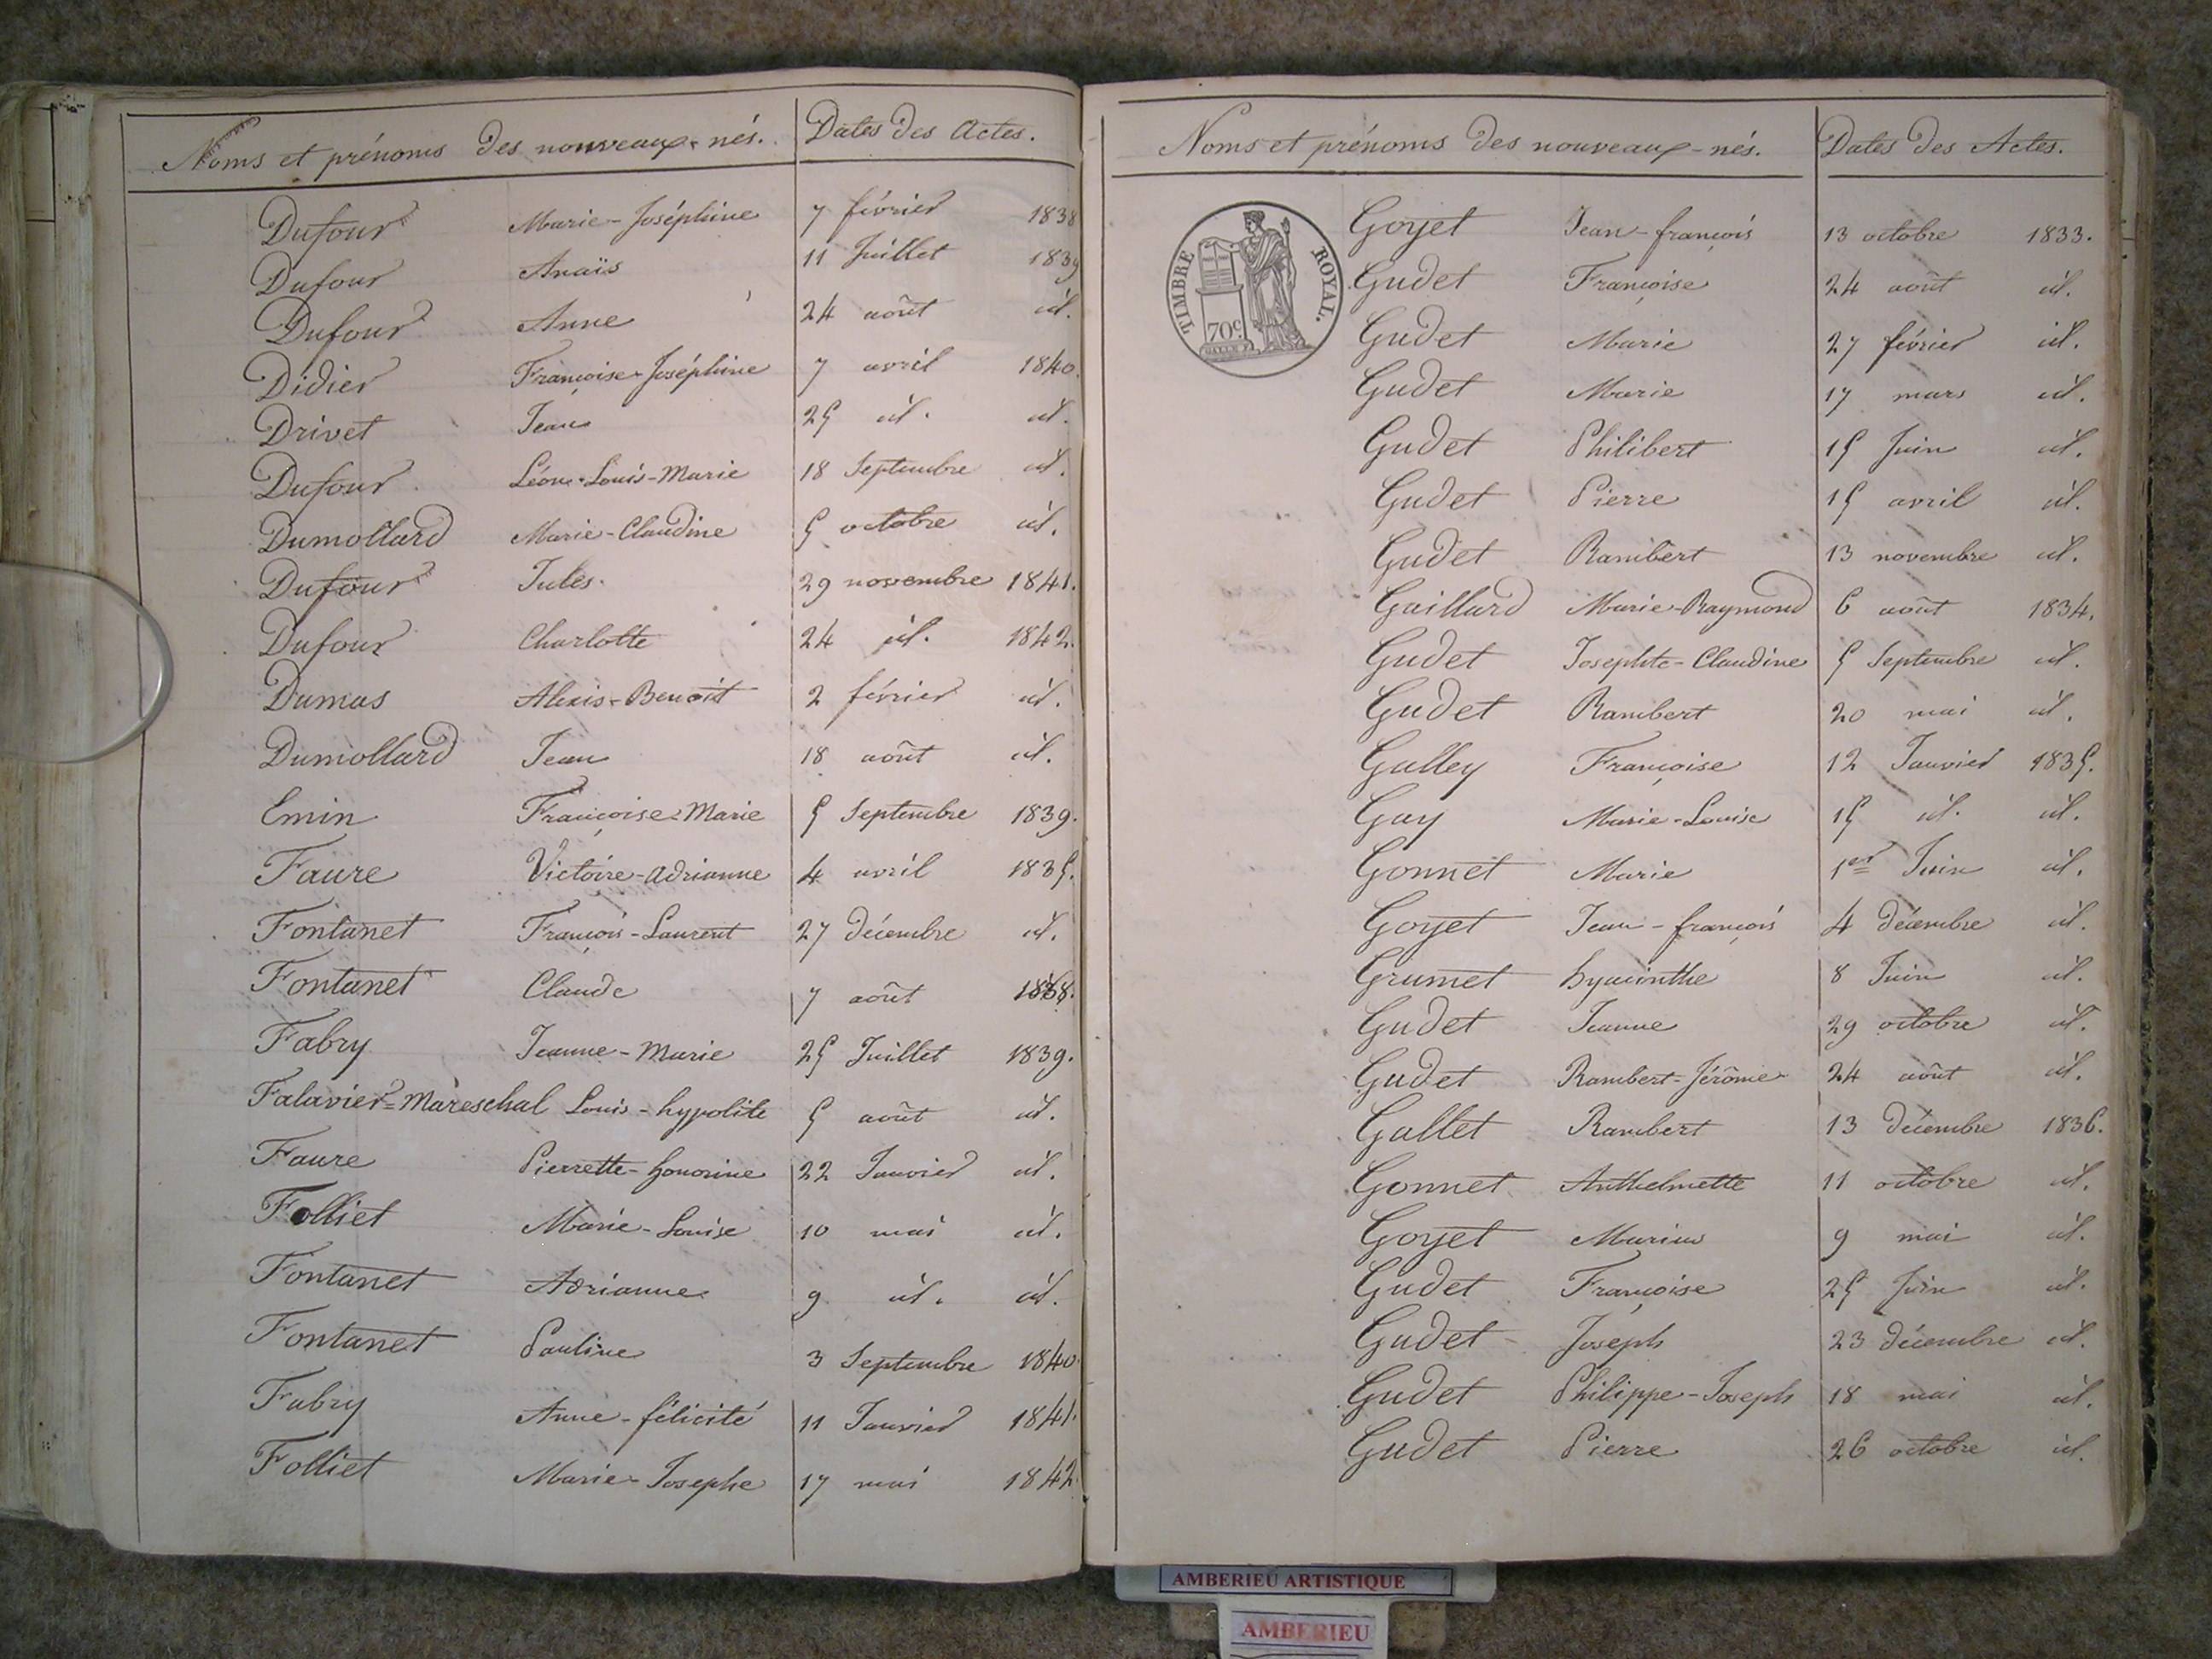 Noms et prénoms des nouveaux-nés. Dates des Actes.
Dufour Marie-Joséphine 7 février 1838
Dufour Anaïs 11 Juillet 1839
Dufour Anne 24 août id.
Didier Françoise-Joséphine 7 avril 1840.
Drivet Jean 25 id. id.
Dufour Léon-Louis-Marie 18 Septembre id.
Dumollard Marie-Claudine 5 octobre id.
Dufour Jules. 29 novembre 1841.
Dufour Charlotte 24 id. 1842.
Dumas Alexis-Benoit 2 février id.
Dumollard Jean 18 août id.
Emin Françoise-Marie 5 Septembre 1839.
Faure Victoire-Adrianne 4 avril 1835.
Fontanet François-Laurent 27 Décembre id.
Fontanet Claude 7 août 1838.
Fabry Jeanne-Marie 25 Juillet 1839.
Falavier=Mareschal Louis-hypolite 5 août id.
Faure Pierrette-honorine 22 Janvier id.
Folliet Marie-Louise 10 mai id.
Fontanet Adrianne 9 id. id.
Fontanet Pauline 3 Septembre 1840.
Fabry Anne-félicité 11 Janvier 1841.
Folliet Marie-Josephe 17 mai 1842.
Noms et prénoms des nouveaux-nés. Dates des Actes.
TIMBRE ROYAL.
70c.
Goyet Jean-françois 13 octobre 1833.
Gudet Françoise 24 août id.
Gudet Marie 27 février id.
Gudet Marie 17 mars id.
Gudet Philibert 15 Juin id.
Gudet Pierre 15 avril id.
Gudet Rambert 13 novembre id.
Gaillard Marie-Raymond 6 août 1834.
Gudet Josephte-Claudine 5 Septembre id.
Gudet Rambert 20 mai id.
Gulley Françoise 12 Janvier 1835.
Guy Marie-Louise 15 id. id.
Gonnet Marie 1er Juin id.
Goyet Jean-françois 4 décembre id.
Grumet hyacinthe 8 Juin id.
Gudet Jeanne 29 octobre id.
Gudet Rambert-Jérôme 24 août id.
Gallet Rambert 13 décembre 1836.
Gonnet Anthelmette 11 octobre id.
Goyet Marius 9 mai id.
Gudet Françoise 25 Juin id.
Gudet Joseph 23 décembre id.
Gudet Philippe-Joseph 18 mai id.
Gudet Pierre 26 octobre id.
AMBERIEU ARTISTIQUE
AMBERIEU